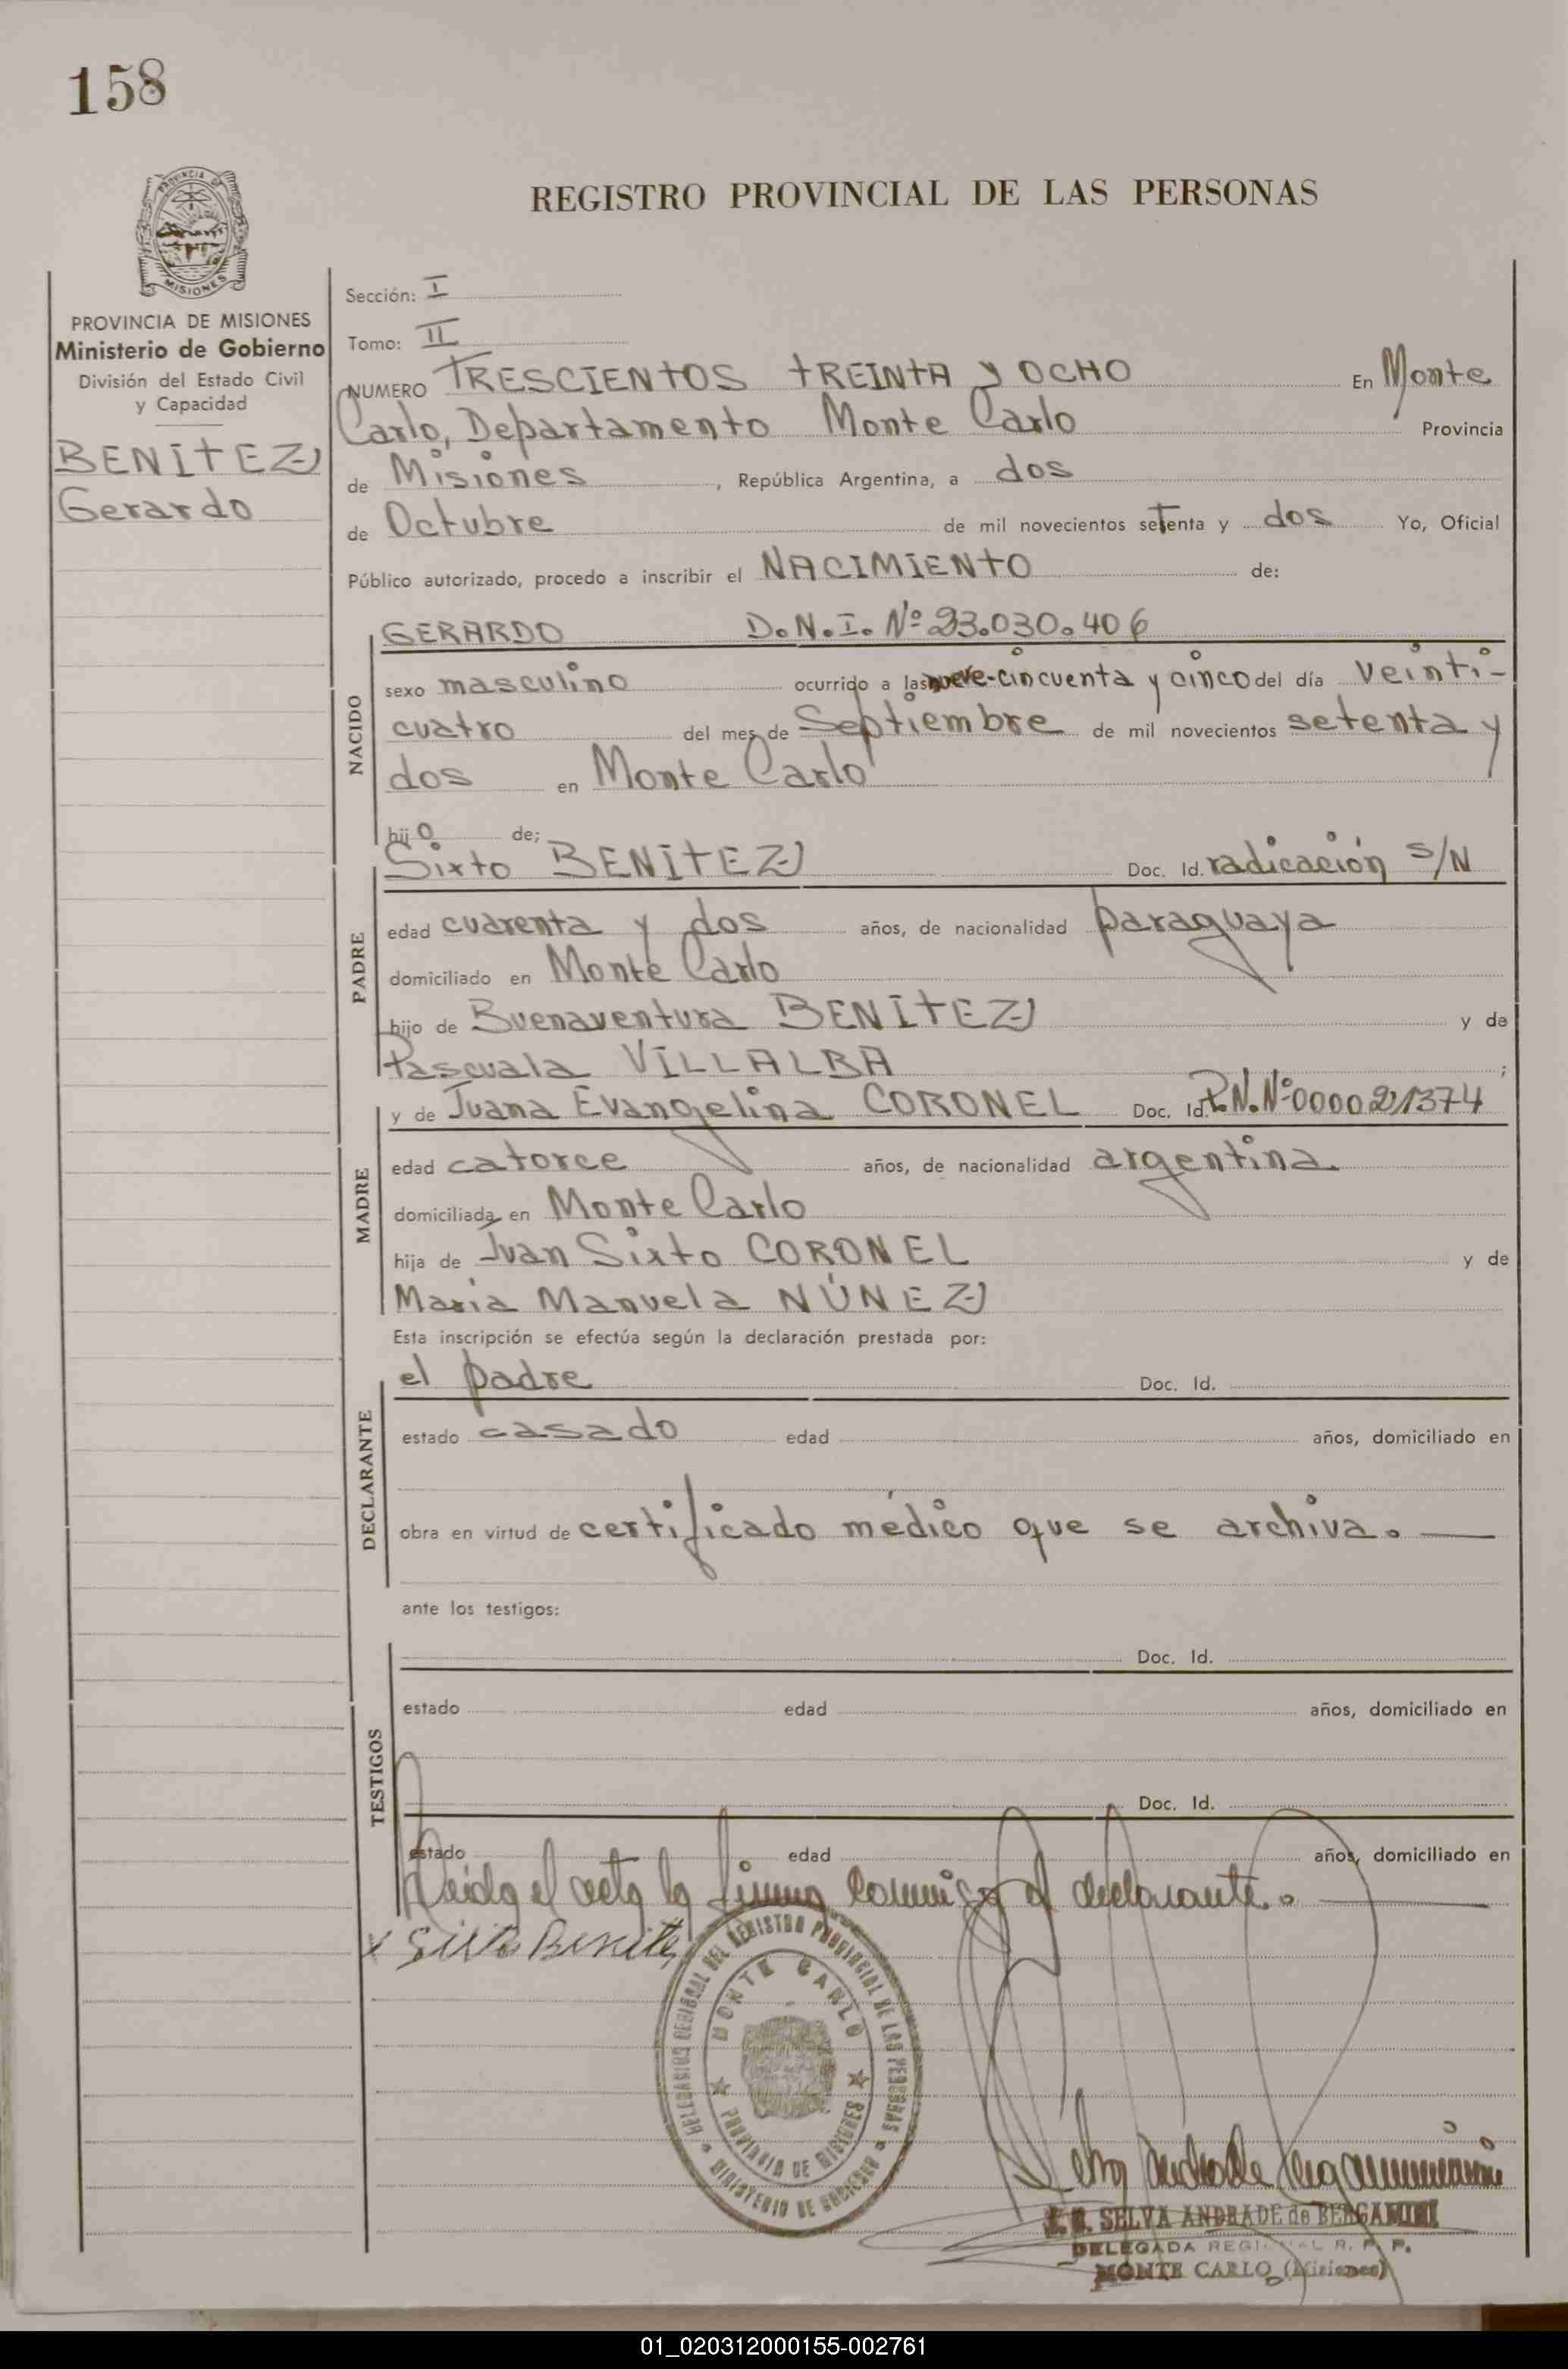 158
PROVINCIA DE
MISIONES
REGISTRO PROVINCIAL DE LAS PERSONAS
PROVINCIA DE MISIONES
Ministerio de Gobierno
División del Estado Civil
y Capacidad
BENÍTEZ
Gerardo
Sección: I
Tomo: II
NUMERO TRESCIENTOS TREINTA y OCHO En Monte
Carlo, Departamento Monte Carlo Provincia
de Misiones, República Argentina, a dos
de Octubre de mil novecientos setenta y dos Yo, Oficial
Público autorizado, procedo a inscribir el NACIMIENTO de:
NACIDO
GERARDO D.N.I. Nº 23.030.406
sexo masculino ocurrido a las nueve-cincuenta y cinco del día veinti-
cuatro del mes de Septiembre de mil novecientos setenta y
dos en Monte Carlo
hijo de;
PADRE
Sixto BENÍTEZ Doc. Id. radicación S/N
edad cuarenta y dos años, de nacionalidad paraguaya
domiciliado en Monte Carlo
hijo de Buenaventura BENÍTEZ y de
Pascuala VILLALBA ;
MADRE
y de Juana Evangelina CORONEL Doc. Id. P.N. Nº 000021374
edad catorce años, de nacionalidad argentina.
domiciliada en Monte Carlo
hija de Juan Sixto CORONEL y de
María Manuela NÚNEZ
Esta inscripción se efectúa según la declaración prestada por:
DECLARANTE
el padre Doc. Id.
estado casado edad años, domiciliado en
obra en virtud de certificado médico que se archiva.
ante los testigos:
TESTIGOS
Doc. Id.
estado edad años, domiciliado en
Doc. Id.
estado edad años, domiciliado en
Leída el acta la firma conmigo el declarante.
x Sixto Benitez
DELEGACION REGIONAL DEL REGISTRO PROVINCIAL DE LAS PERSONAS
MINISTERIO DE GOBIERNO
MONTE CARLO
PROVINCIA DE MISIONES
SELVA ANDRADE de BERGAMINI
DELEGADA REGIONAL R. P. P.
MONTE CARLO (Misiones)
01_020312000155-002761